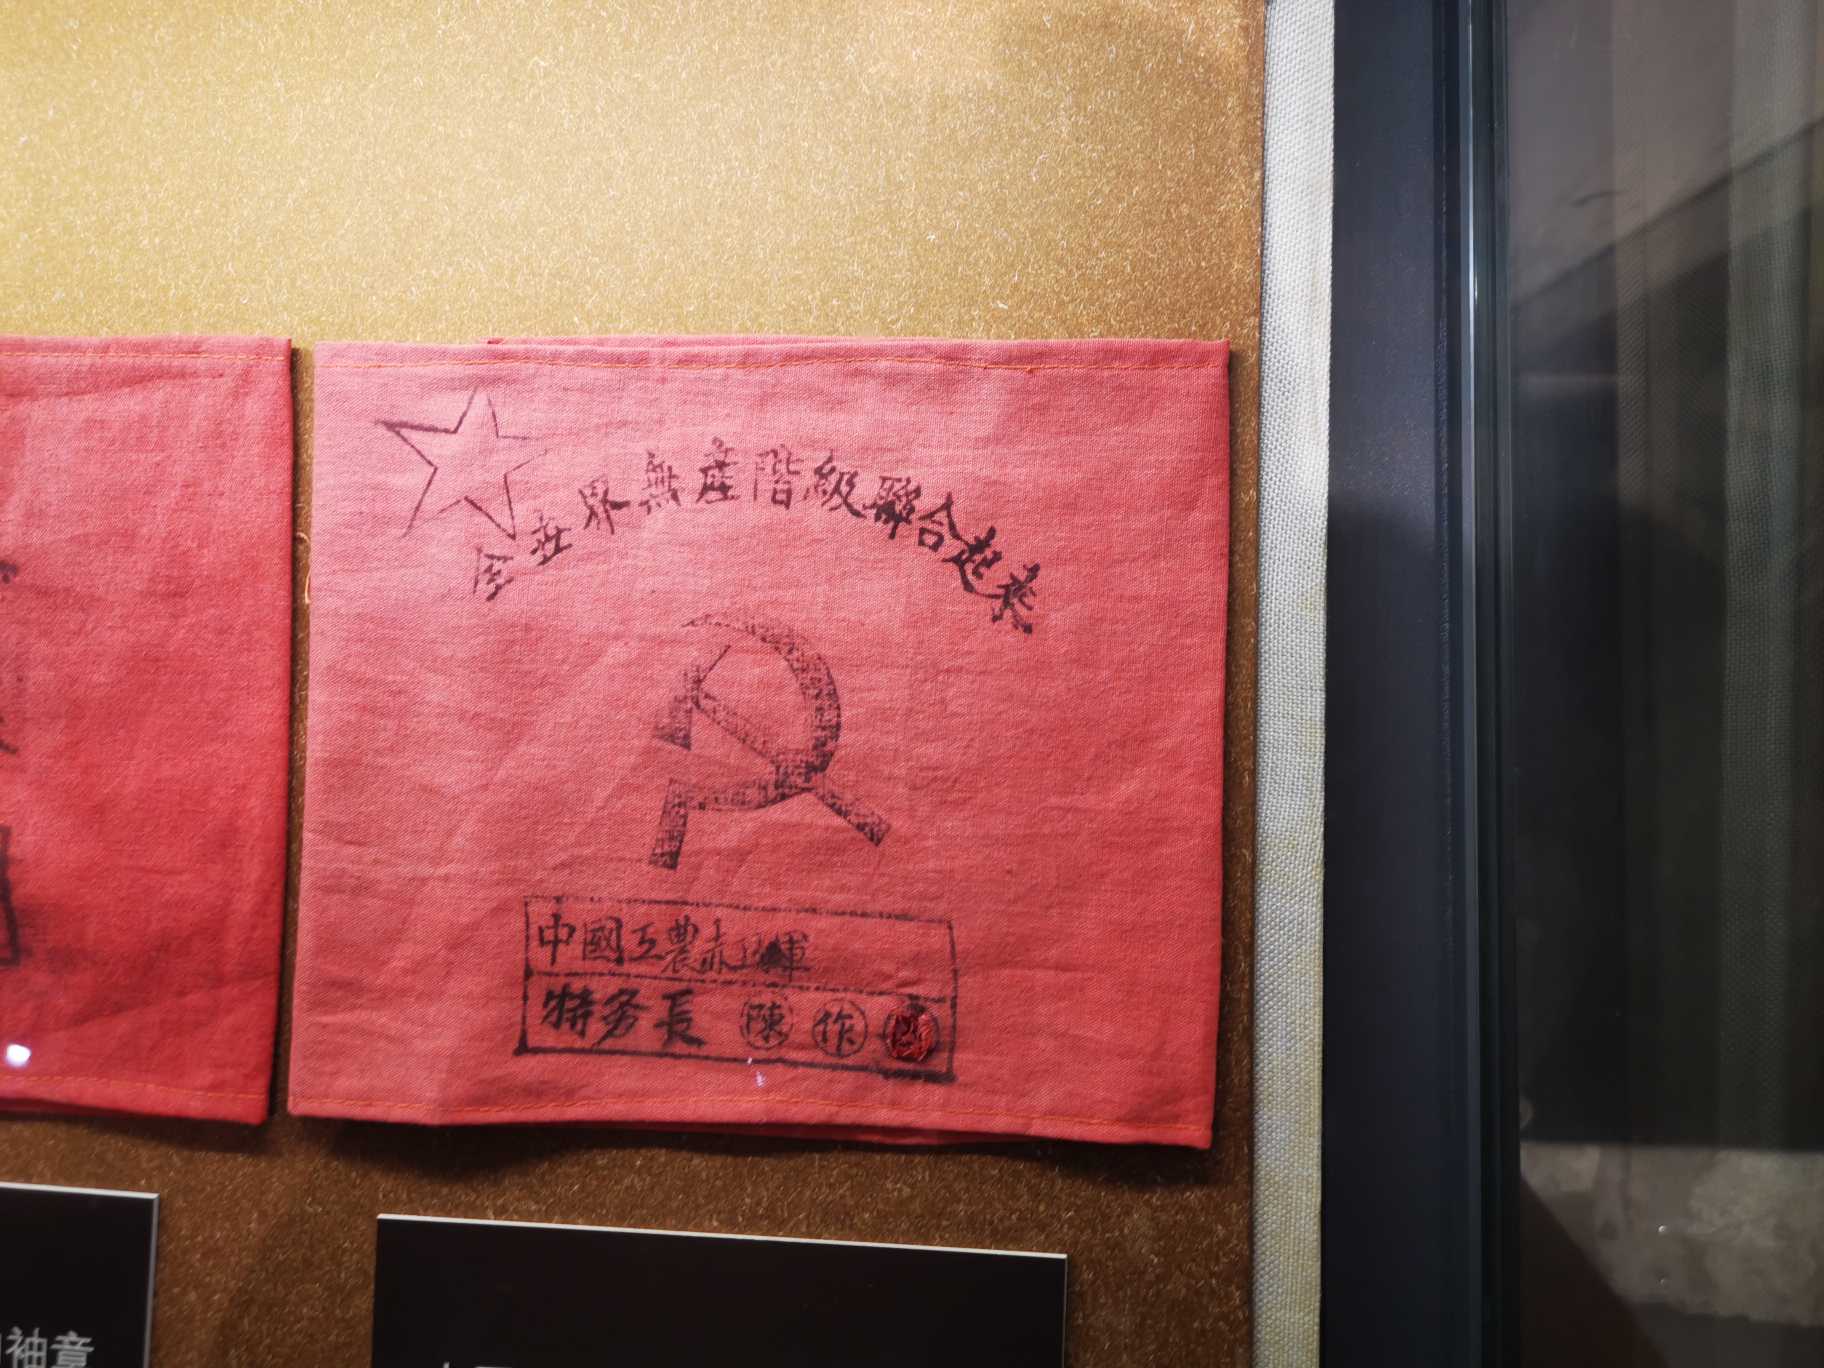 全世界無產階級聯合起來
中國工農赤軍
特务長 陳 作
袖章